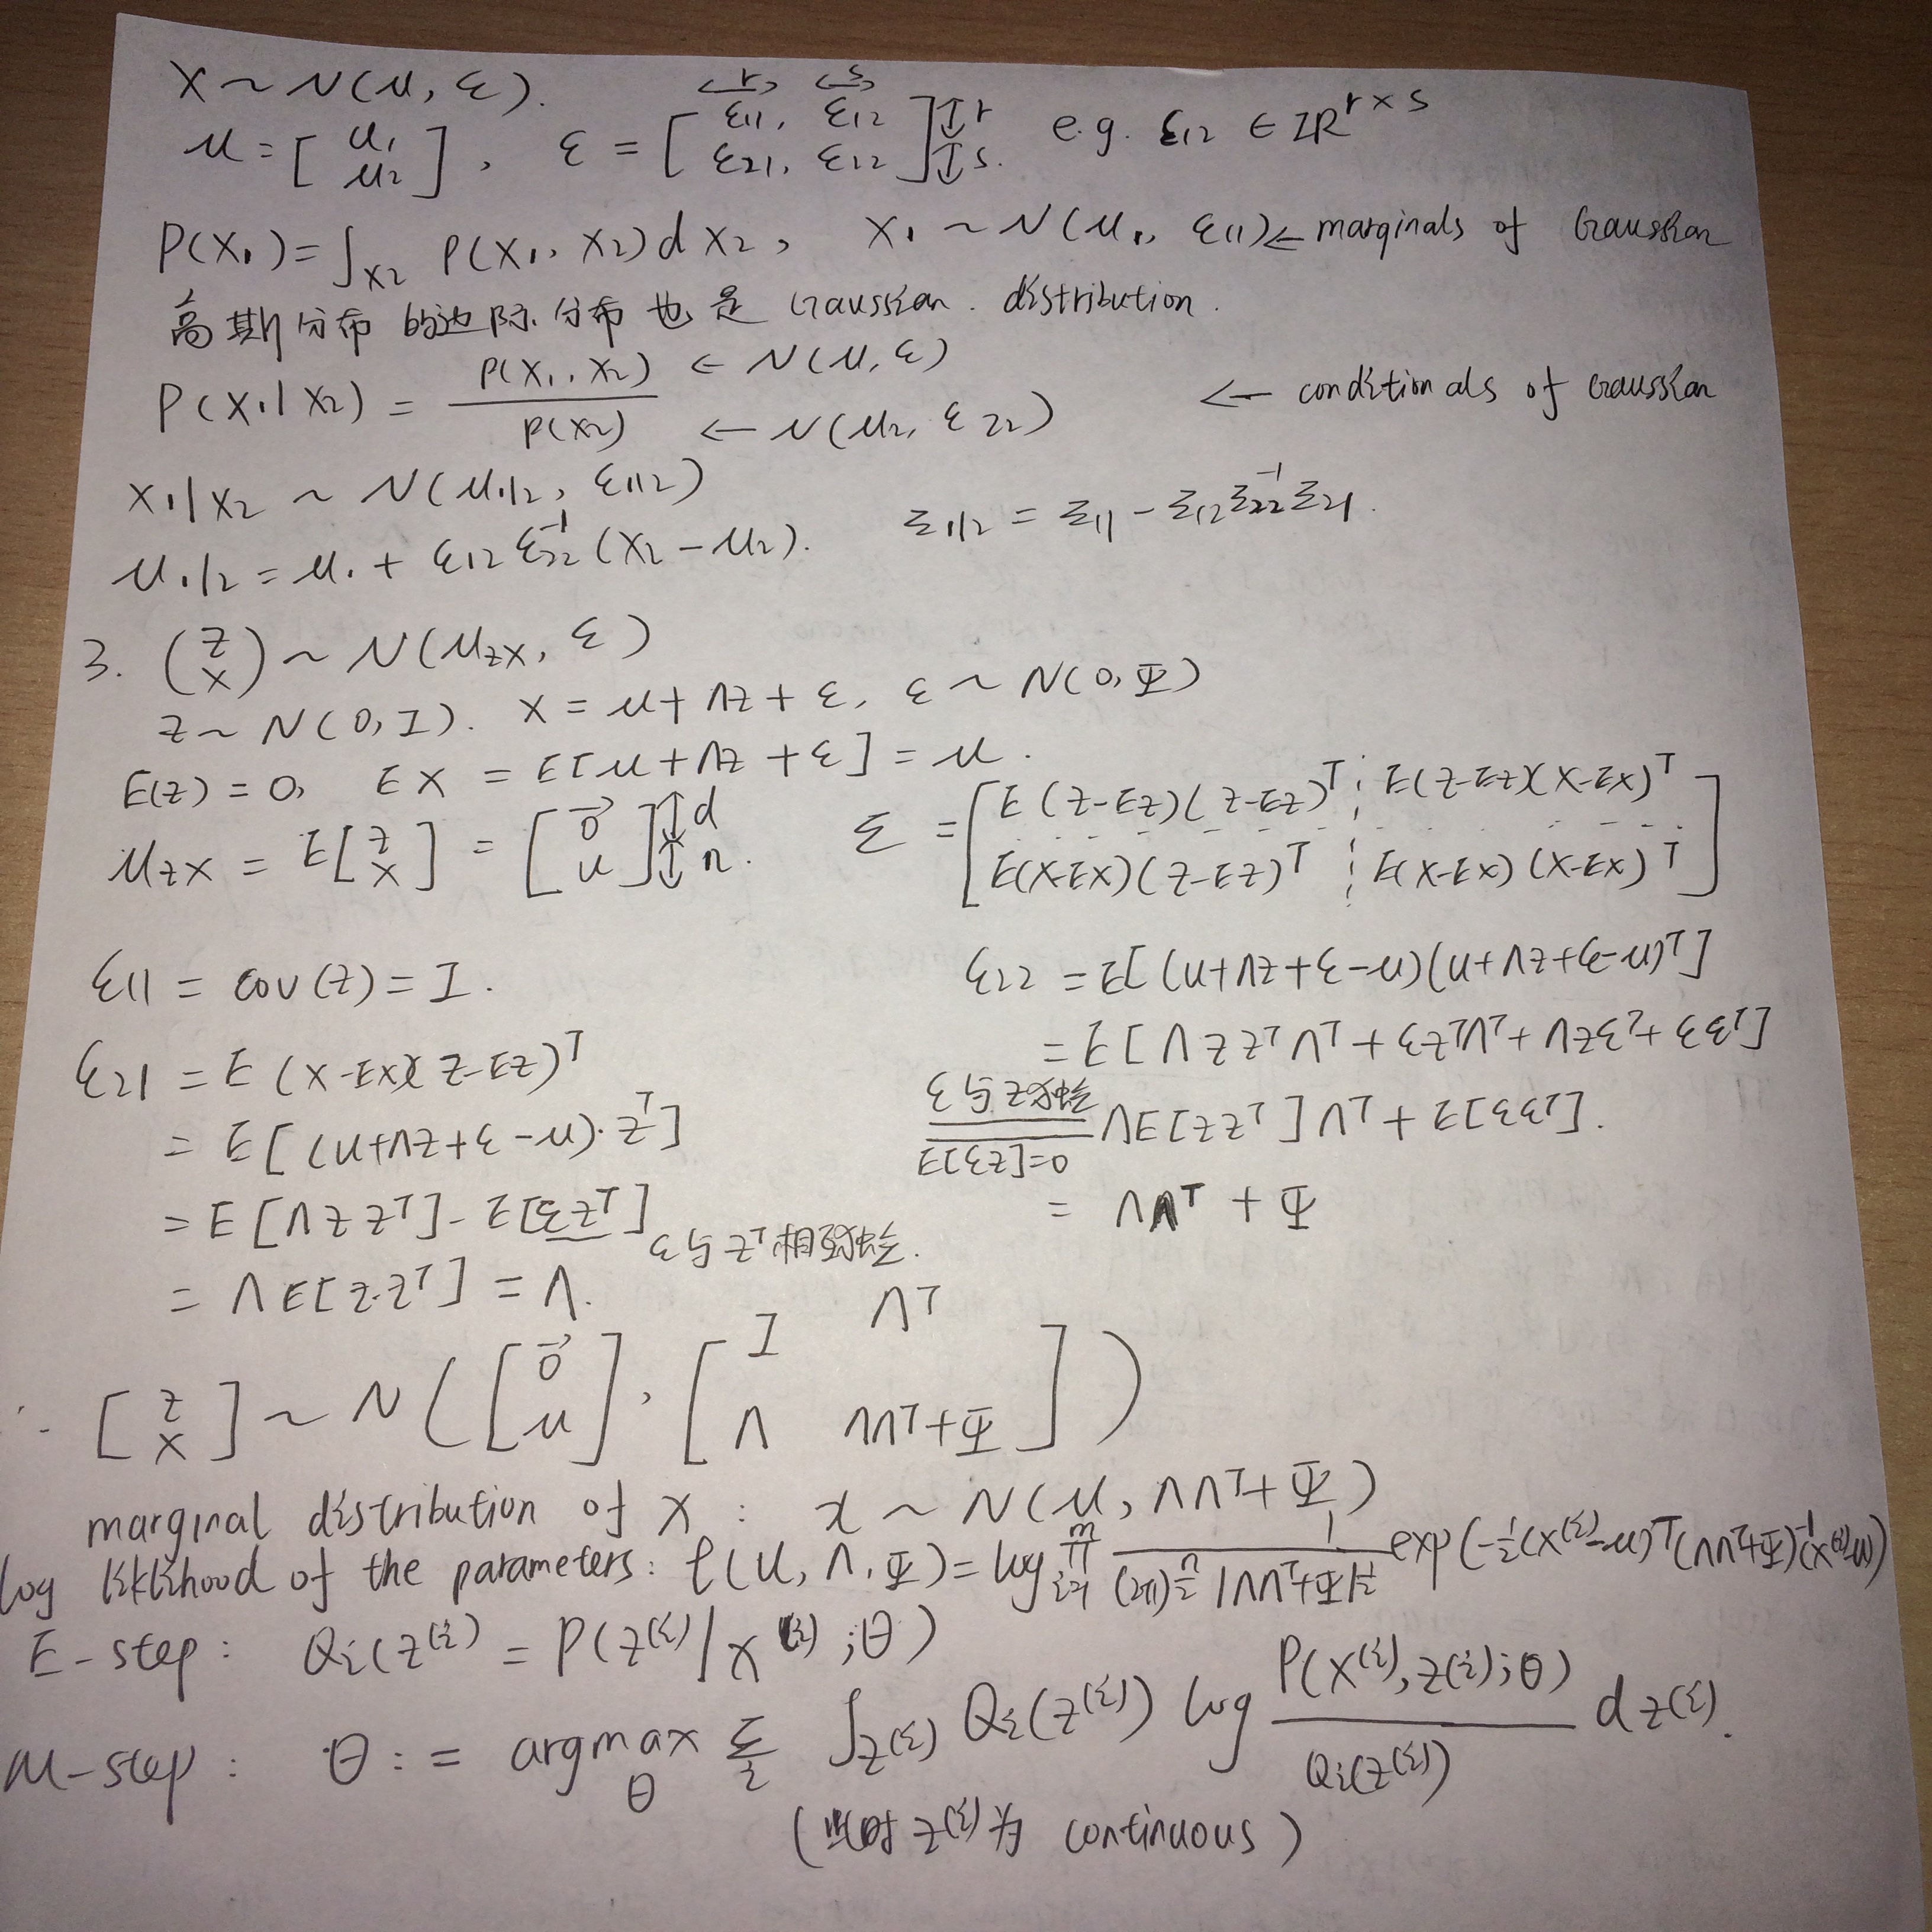 X ~ N(μ, Σ).
μ = [ μ1 μ2 ], Σ = [ Σ11, Σ12 Σ21, Σ12 ] ↕r ↕s. e.g. Σ12 ∈ IR^{r×s}
P(X1) = ∫_{X2} P(X1, X2) d X2, X1 ~ N(μ1, Σ11) ← marginals of Gaussian
高斯分布的边际分布也是 Gaussian distribution.
P(X1|X2) = P(X1, X2) / P(X2) ← N(μ, Σ) ← N(μ2, Σ22) ← conditionals of Gaussian
X1|X2 ~ N(μ1|2, Σ1|2)
μ1|2 = μ1 + Σ12 Σ22^{-1} (X2 - μ2). Σ1|2 = Σ11 - Σ12 Σ22^{-1} Σ21.
3. (z x) ~ N(μzx, Σ)
z ~ N(0, I). X = μ + Λz + ε, ε ~ N(0, Ψ)
E(z) = 0, EX = E[μ + Λz + ε] = μ.
μzx = E[z x] = [0⃗ μ] ↕d ↕n. Σ = [ E(z-Ez)(z-Ez)^T E(z-Ez)(X-EX)^T
E(X-EX)(z-Ez)^T E(X-EX)(X-EX)^T ]
Σ11 = cov(z) = I.
Σ21 = E(X-EX)(z-Ez)^T
= E[(μ+Λz+ε-μ)·z^T]
= E[Λzz^T] - E[εz^T] ε与z^T相互独立.
= ΛE[z·z^T] = Λ.
Σ22 = E[(μ+Λz+ε-μ)(μ+Λz+ε-μ)^T]
= E[Λzz^TΛ^T + εz^TΛ^T + Λzε^T + εε^T]
ε与z独立 E[εz]=0 = ΛE[zz^T]Λ^T + E[εε^T].
= ΛΛ^T + Ψ
∴ [z x] ~ N([0⃗ μ], [I Λ^T Λ ΛΛ^T+Ψ])
marginal distribution of X : x ~ N(μ, ΛΛ^T+Ψ)
log liklihood of the parameters: ℓ(μ, Λ, Ψ) = log ∏_{i=1}^{m} 1 / ((2π)^{n/2} |ΛΛ^T+Ψ|^{1/2}) exp(-1/2 (X^(i)-μ)^T (ΛΛ^T+Ψ)^{-1} (X^(i)-μ))
E-step : Qi(z^(i)) = P(z^(i)|X^(i);θ)
M-step : θ := argmax_θ Σ_i ∫_{z^(i)} Qi(z^(i)) log P(X^(i), z^(i);θ) / Qi(z^(i)) dz^(i).
(此时z^(i)为 continuous)